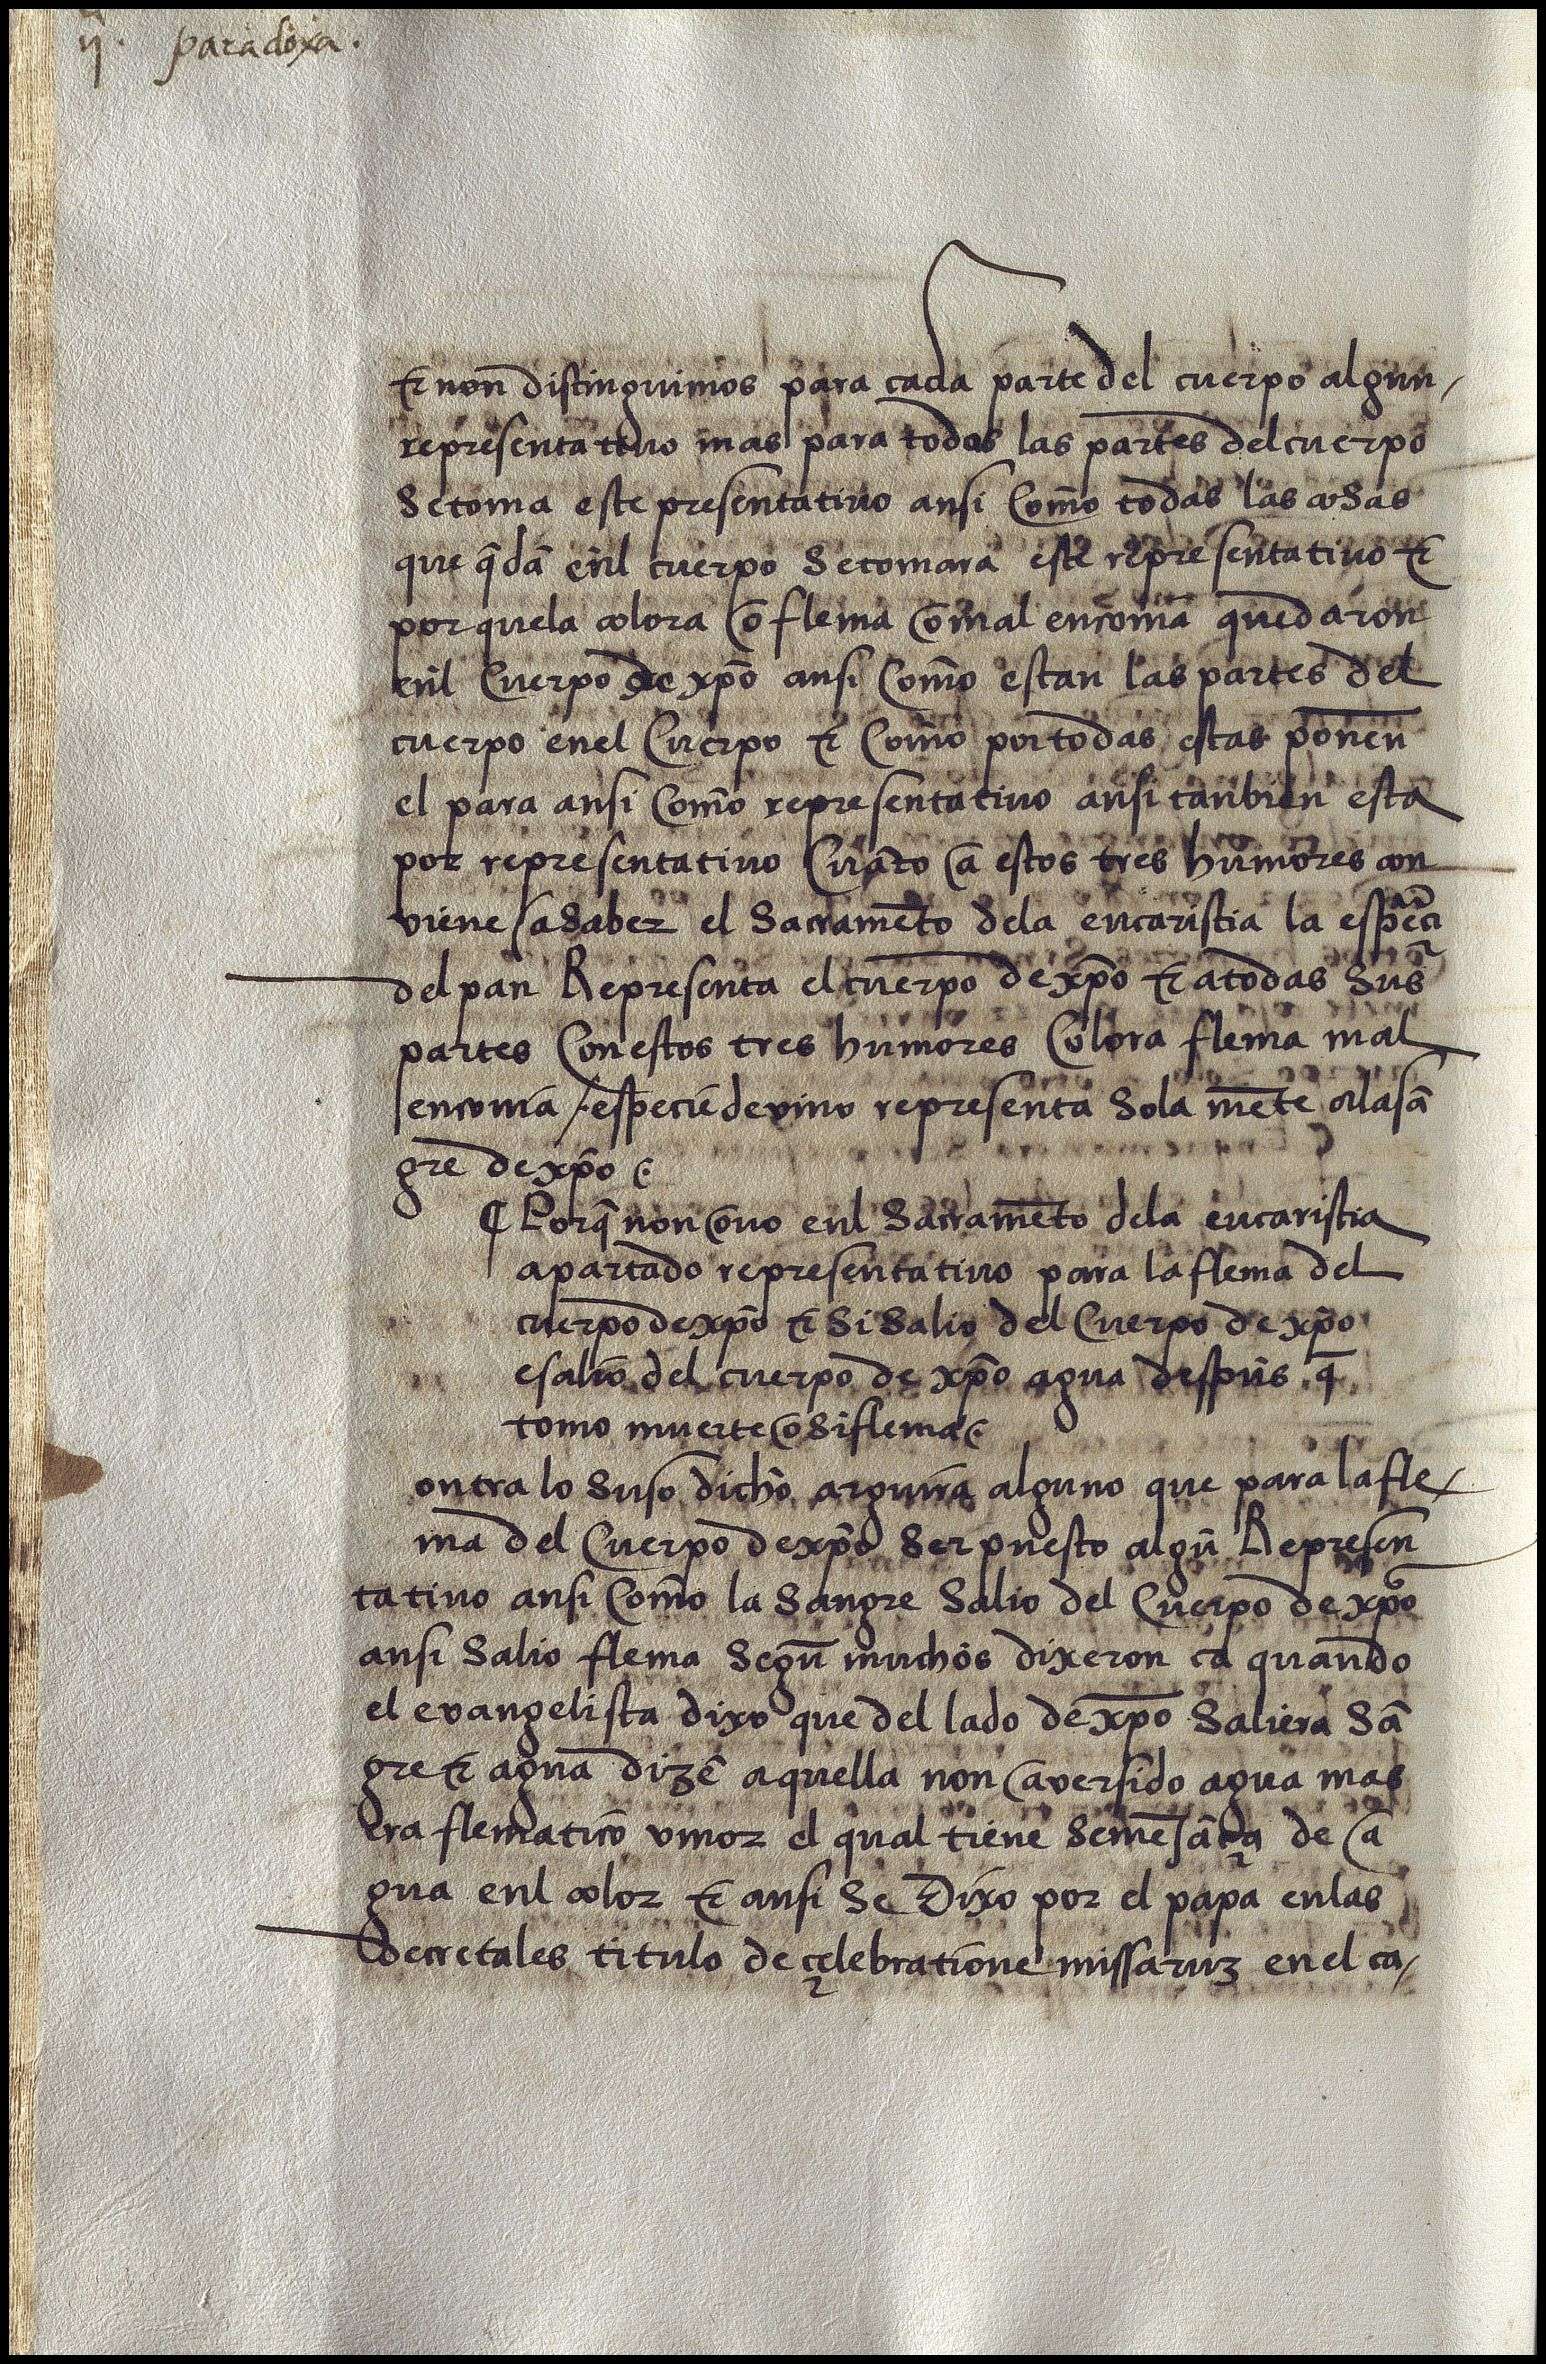 ij. paradoxa.
& non distinguimos para cada parte del cuerpo algun
representatiuo mas para todas las partes del cuerpo
Se toma este presentatiuo ansi Como todas las cosas
que q̄dā enl cuerpo Se tomara este representatiuo &
por que la colora o flema o malenconia quedaron
enl Cuerpo de xp̄o ansi Como estan las partes del
cuerpo en el Cuerpo & Como por todas estas ponen
el para ansi Como representatiuo ansi tanbien esta
por representatiuo Cuāto a estos tres humores con
viene a Saber el Sacramēto dela eucaristia la
del pan Representa el cuerpo de xp̄o & a todas Sus
partes Con estos tres humores Colora flema mal
enconia / espeçie de vino representa Sola mēte a la sā
gre de xp̄o
¶ Porq̄ non ouo enl Sacramēto dela eucaristia
apartado representatiuo para la flema del
cuerpo de xp̄o & Si Salio del Cuerpo de xp̄o
e salio del cuerpo de xp̄o agua despūs q̄
tomo muerte o Si flema
ontra lo Suso dicho arguira alguno que para la fle
ma del Cuerpo de xp̄o Ser puesto algū Represen
tatiuo ansi Como la Sangre Salio del Cuerpo de xp̄o
ansi Salio flema Segū muchos dixeron ca quando
el evangelista dixo que del lado de xp̄o Saliera Sā
gre & agua dizē aquella non aver sido agua mas
era flematico vmor el qual tiene de a
gua enl color & ansi Se Dixo por el papa en las
Decretales titulo de çelebratione missaruz en el ca